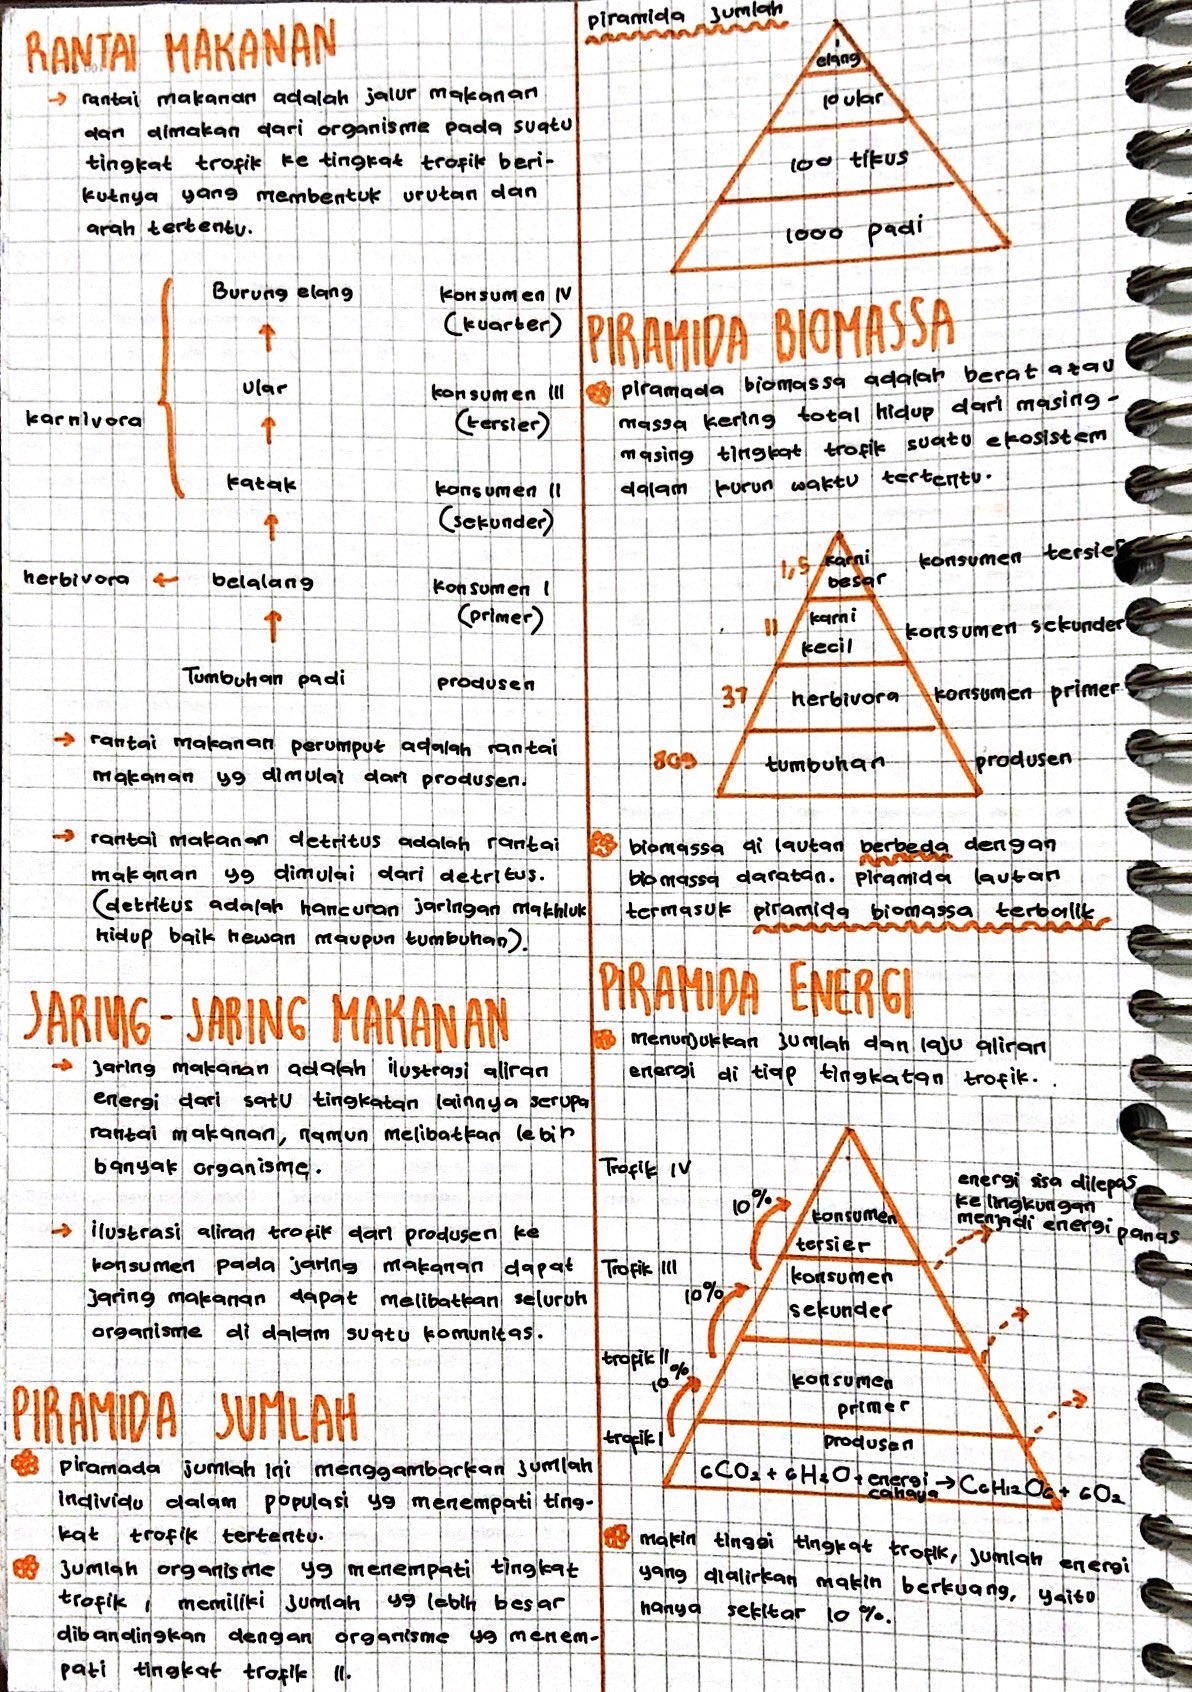 RANTAI MAKANAN
→ rantai makanan adalah jalur makanan
dan dimakan dari organisme pada suatu
tingkat trofik ke tingkat trofik beri-
kutnya yang membentuk urutan dan
arah tertentu.
Burung elang konsumen IV
(kuarter)
ular konsumen III
(tersier)
karnivora
katak konsumen II
(sekunder)
herbivora ← belalang konsumen I
(primer)
Tumbuhan padi produsen
→ rantai makanan perumput adalah rantai
makanan yg dimulai dari produsen.
→ rantai makanan detritus adalah rantai
makanan yg dimulai dari detritus.
(detritus adalah hancuran jaringan makhluk
hidup baik hewan maupun tumbuhan).
JARING-JARING MAKANAN
→ jaring makanan adalah ilustrasi aliran
energi dari satu tingkatan lainnya serupa
rantai makanan, namun melibatkan lebih
banyak organisme.
→ ilustrasi aliran trofik dari produsen ke
konsumen pada jaring makanan dapat
jaring makanan dapat melibatkan seluruh
organisme di dalam suatu komunitas.
PIRAMIDA JUMLAH
piramada jumlah ini menggambarkan jumlah
individu dalam populasi yg menempati ting-
kat trofik tertentu.
jumlah organisme yg menempati tingkat
trofik I memiliki jumlah yg lebih besar
dibandingkan dengan organisme yg menem-
pati tingkat trofik II.
piramida jumlah
1
elang
10 ular
100 tikus
1000 padi
PIRAMIDA BIOMASSA
piramada biomassa adalah berat atau
massa kering total hidup dari masing-
masing tingkat trofik suatu ekosistem
dalam kurun waktu tertentu.
1,5 karni besar konsumen tersier
11 karni kecil konsumen sekunder
37 herbivora konsumen primer
809 tumbuhan produsen
biomassa di lautan berbeda dengan
biomassa daratan. piramida lautan
termasuk piramida biomassa terbalik
PIRAMIDA ENERGI
menunjukkan jumlah dan laju aliran
energi di tiap tingkatan trofik.
Trofik IV
energi sisa dilepas
ke lingkungan
menjadi energi panas
10%
konsumen
tersier
Trofik III
10%
konsumen
sekunder
trofik II
10%
konsumen
primer
trofik I
produsen
6CO2 + 6H2O + energi cahaya → C6H12O6 + 6O2
makin tinggi tingkat trofik, jumlah energi
yang dialirkan makin berkuang, yaitu
hanya sekitar 10%.